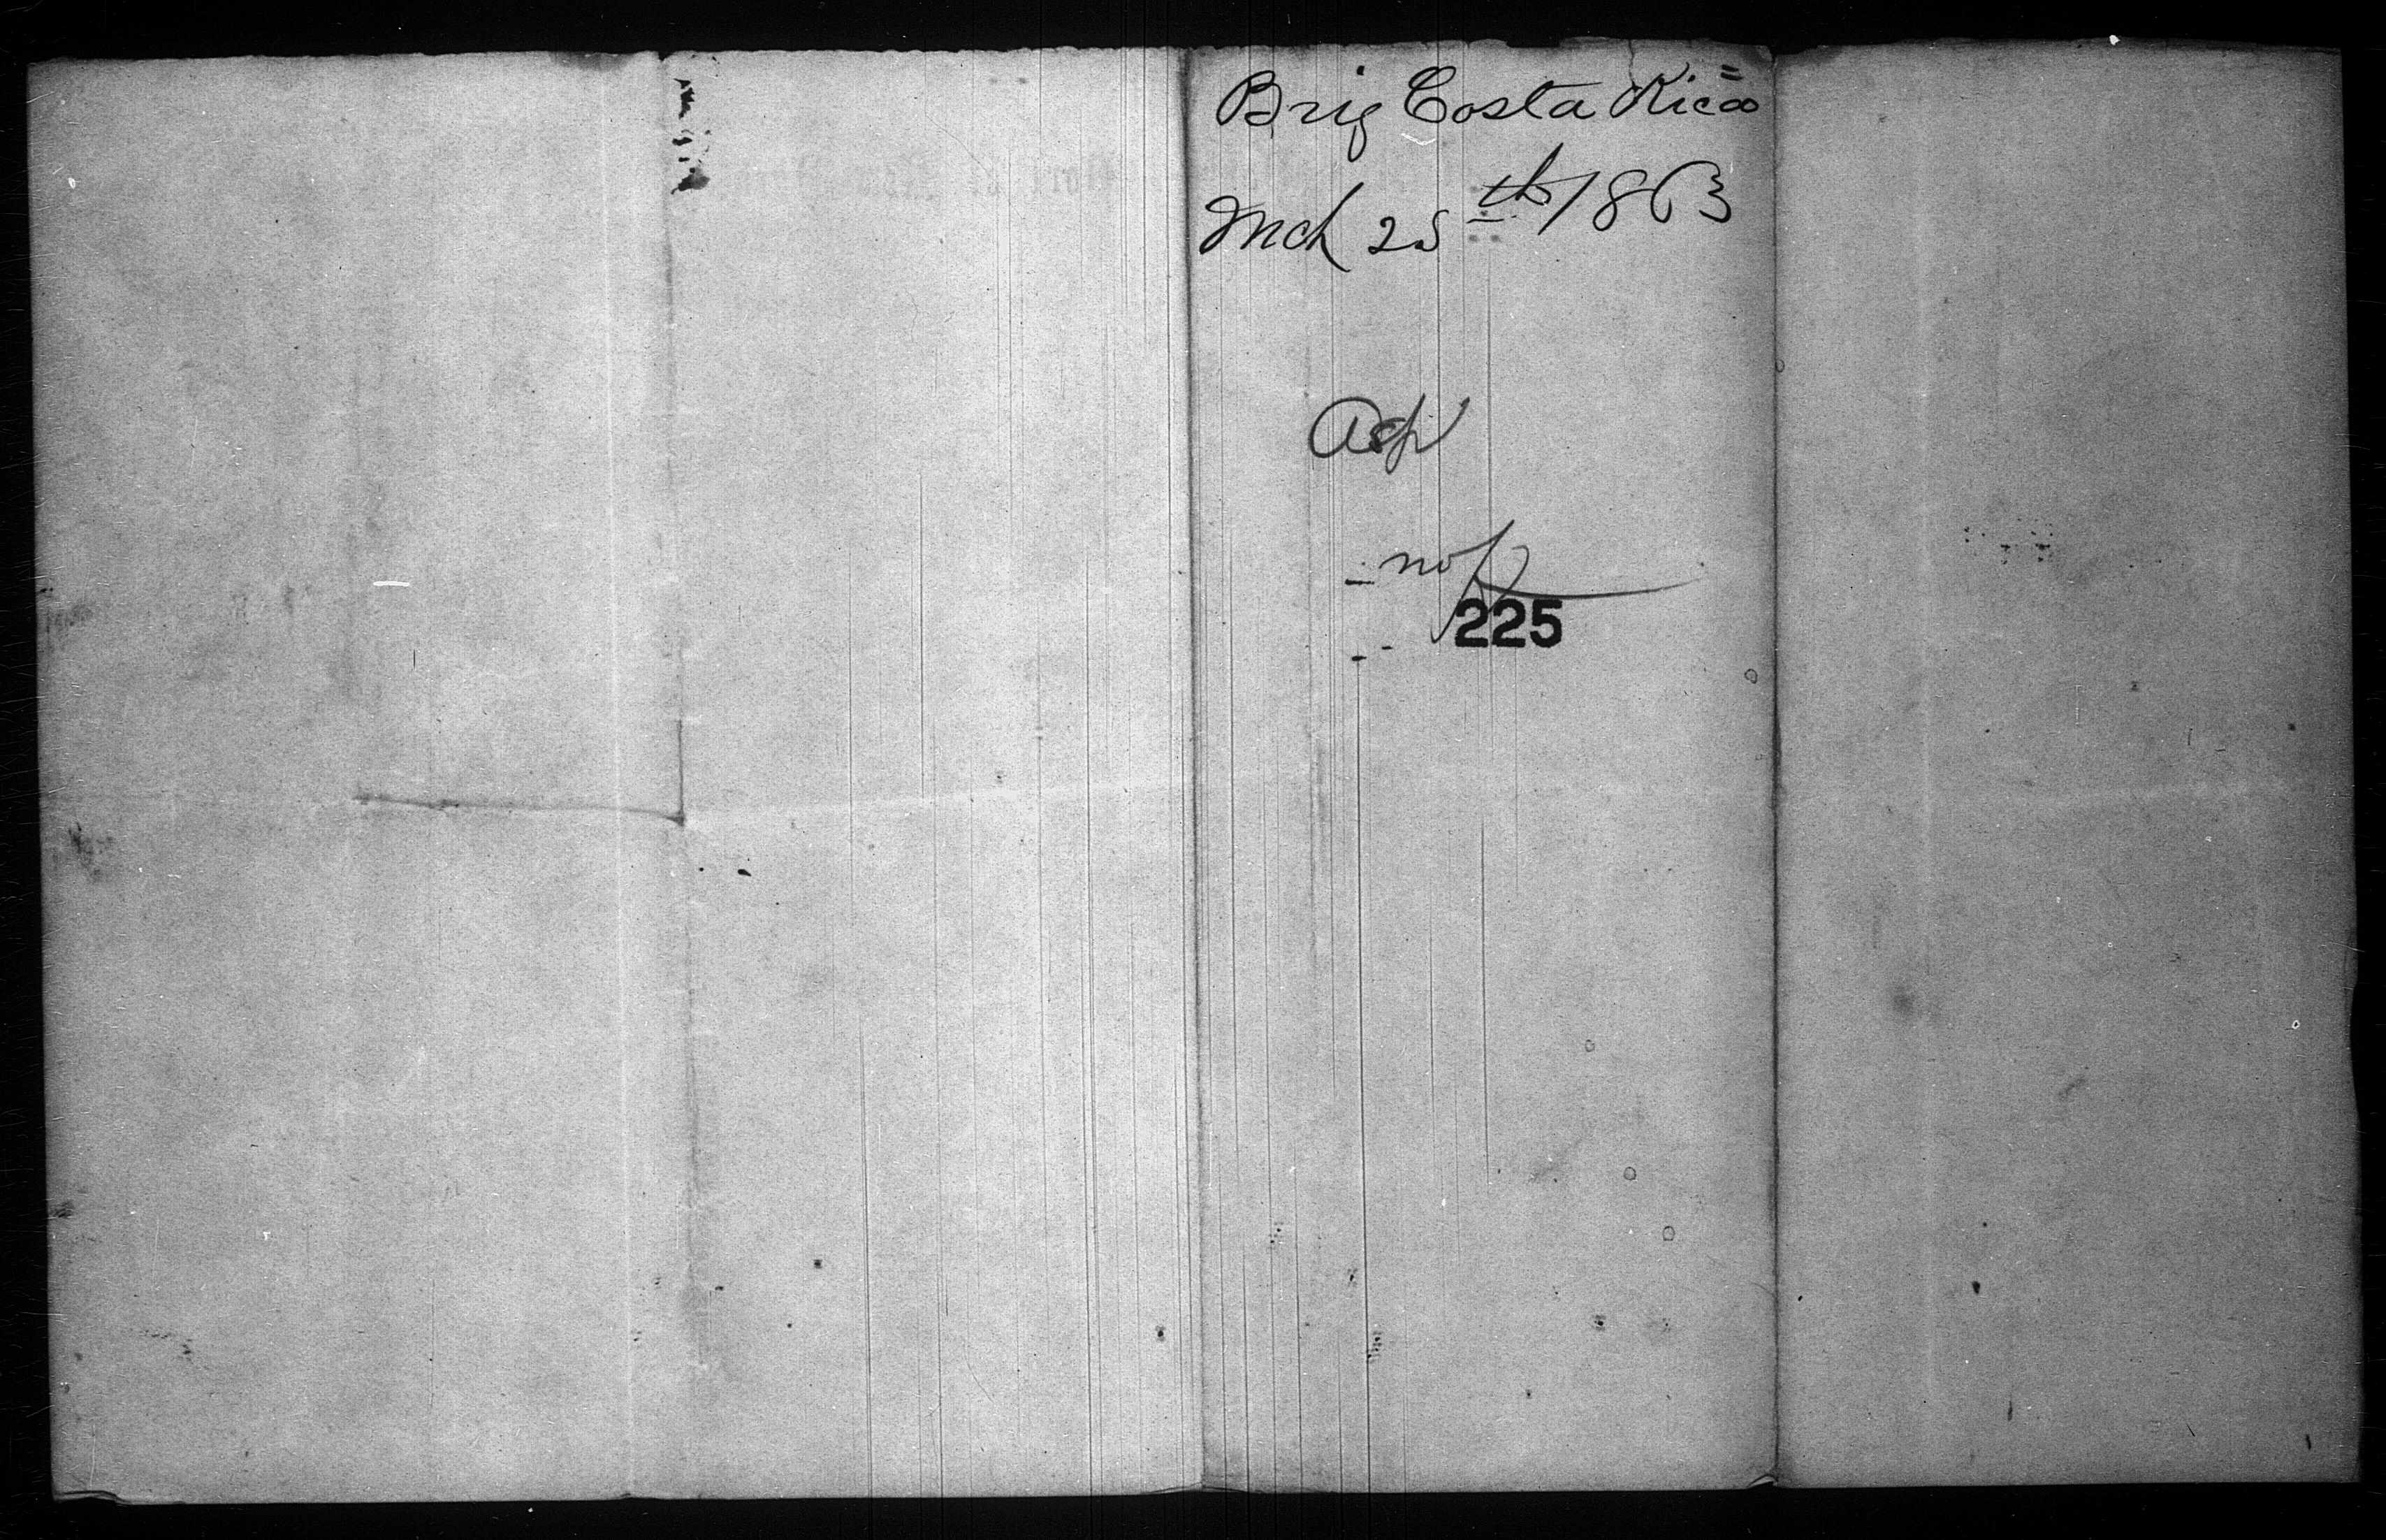 Brig Costa Rica
Mch 25th 1863
Asp
225